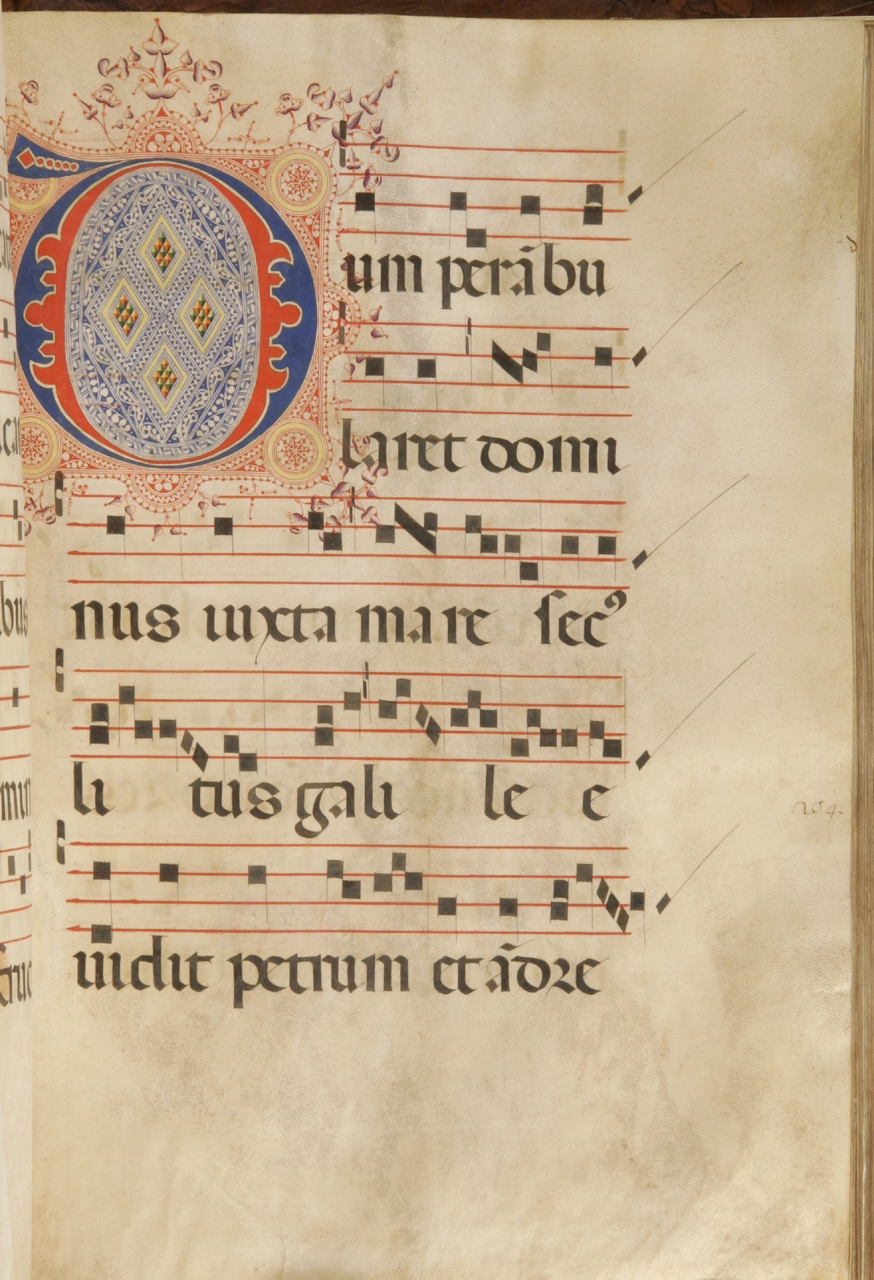 Dum perābu
laret domi
nus iuxta mare secꝰ
li tus gali le e
uidit petrum et ādre